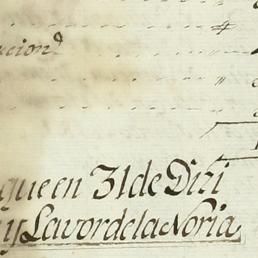 cion d
que en 31 de Dizi
y Lavor de la Noria